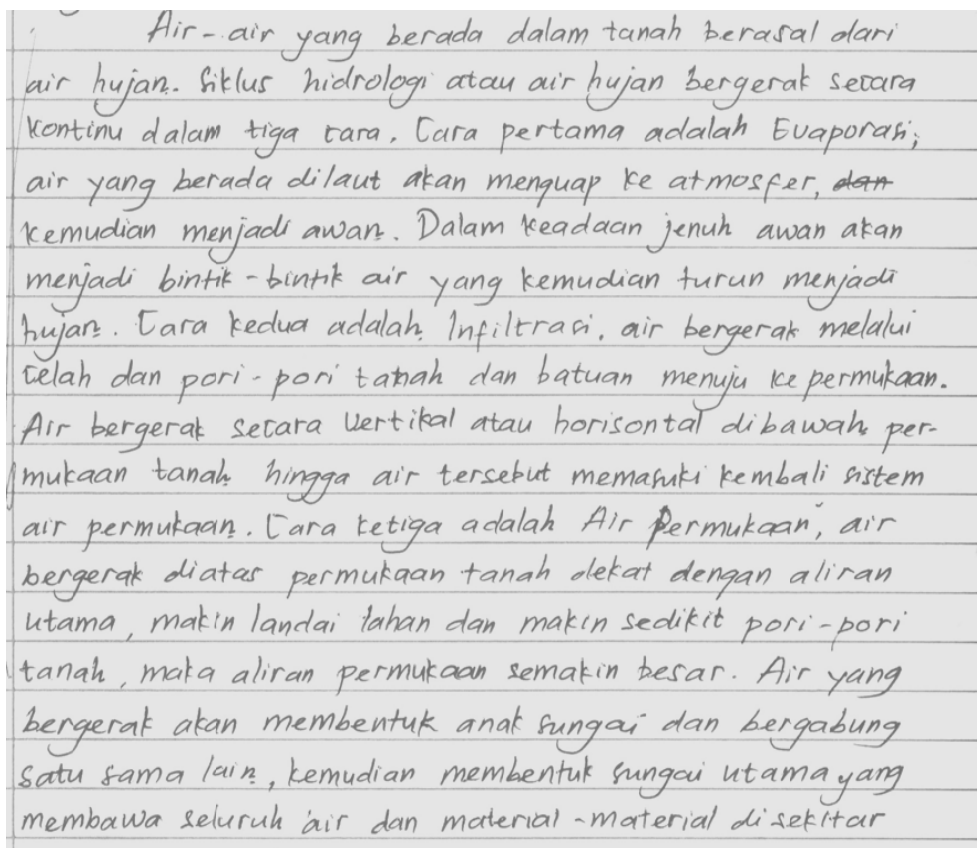 Air-air yang berada dalam tanah berasal dari
air hujan. Siklus hidrologi atau air hujan bergerak secara
kontinu dalam tiga cara. Cara pertama adalah Evaporasi;
air yang berada dilaut akan menguap ke atmosfer, dan
kemudian menjadi awan. Dalam keadaan jenuh awan akan
menjadi bintik-bintik air yang kemudian turun menjadi
hujan. Cara kedua adalah Infiltrasi, air bergerak melalui
celah dan pori-pori tanah dan batuan menuju ke permukaan.
Air bergerak secara Vertikal atau horisontal dibawah per-
mukaan tanah hingga air tersebut memasuki kembali sistem
air permukaan. Cara ketiga adalah Air Permukaan, air
bergerak diatas permukaan tanah dekat dengan aliran
utama, makin landai lahan dan makin sedikit pori-pori
tanah, maka aliran permukaan semakin besar. Air yang
bergerak akan membentuk anak sungai dan bergabung
satu sama lain, kemudian membentuk sungai utama yang
membawa seluruh air dan material-material disekitar